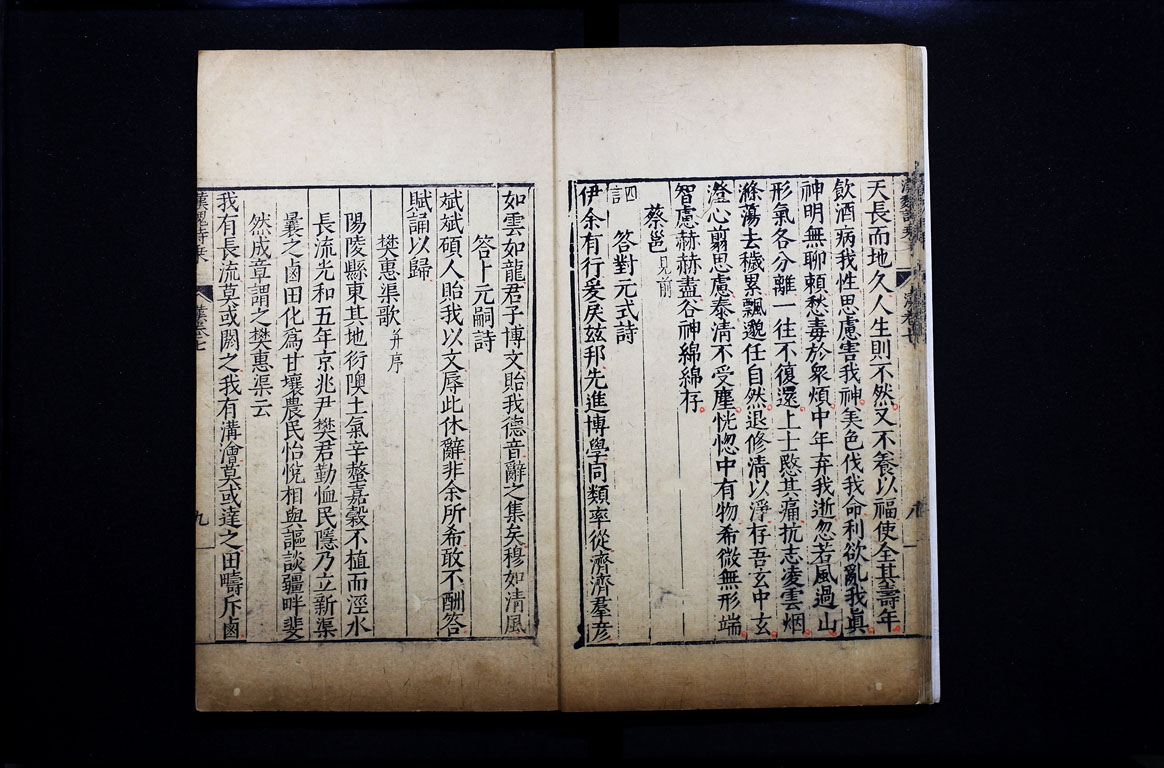 天長而地久人生則不然又不養以福使全其壽年
飲酒病我性思慮害我神美色伐我命利欲亂我真
神明無聊賴愁毒於衆煩中年弃我逝忽若風過山
形氣各分離一往不復還上士愍其痛抗志凌雲烟
滌蕩去穢累飄邈任自然退修清以淨存吾玄中玄
澄心翦思慮泰清不受塵恍惚中有物希微無形端
智慮赫赫盡谷神綿綿存
蔡邕見前
答對元式詩
伊余有行爰戾茲邦先進博學同類率從濟濟羣彦
如雲如龍君子博文貽我德音辭之集矣穆如清風
答卜元嗣詩
斌斌碩人貽我以文辱此休辭非余所希敢不酬答
賦誦以歸
樊惠渠歌并序
陽陵縣東其地衍隩土氣辛螫嘉穀不植而涇水
長流光和五年京兆尹樊君勤恤民隱乃立新渠
曩之鹵田化爲甘壤農民怡悅相與謳談疆畔斐
然成章謂之樊惠渠云
我有長流莫或閼之我有溝澮莫或達之田疇斥鹵
九